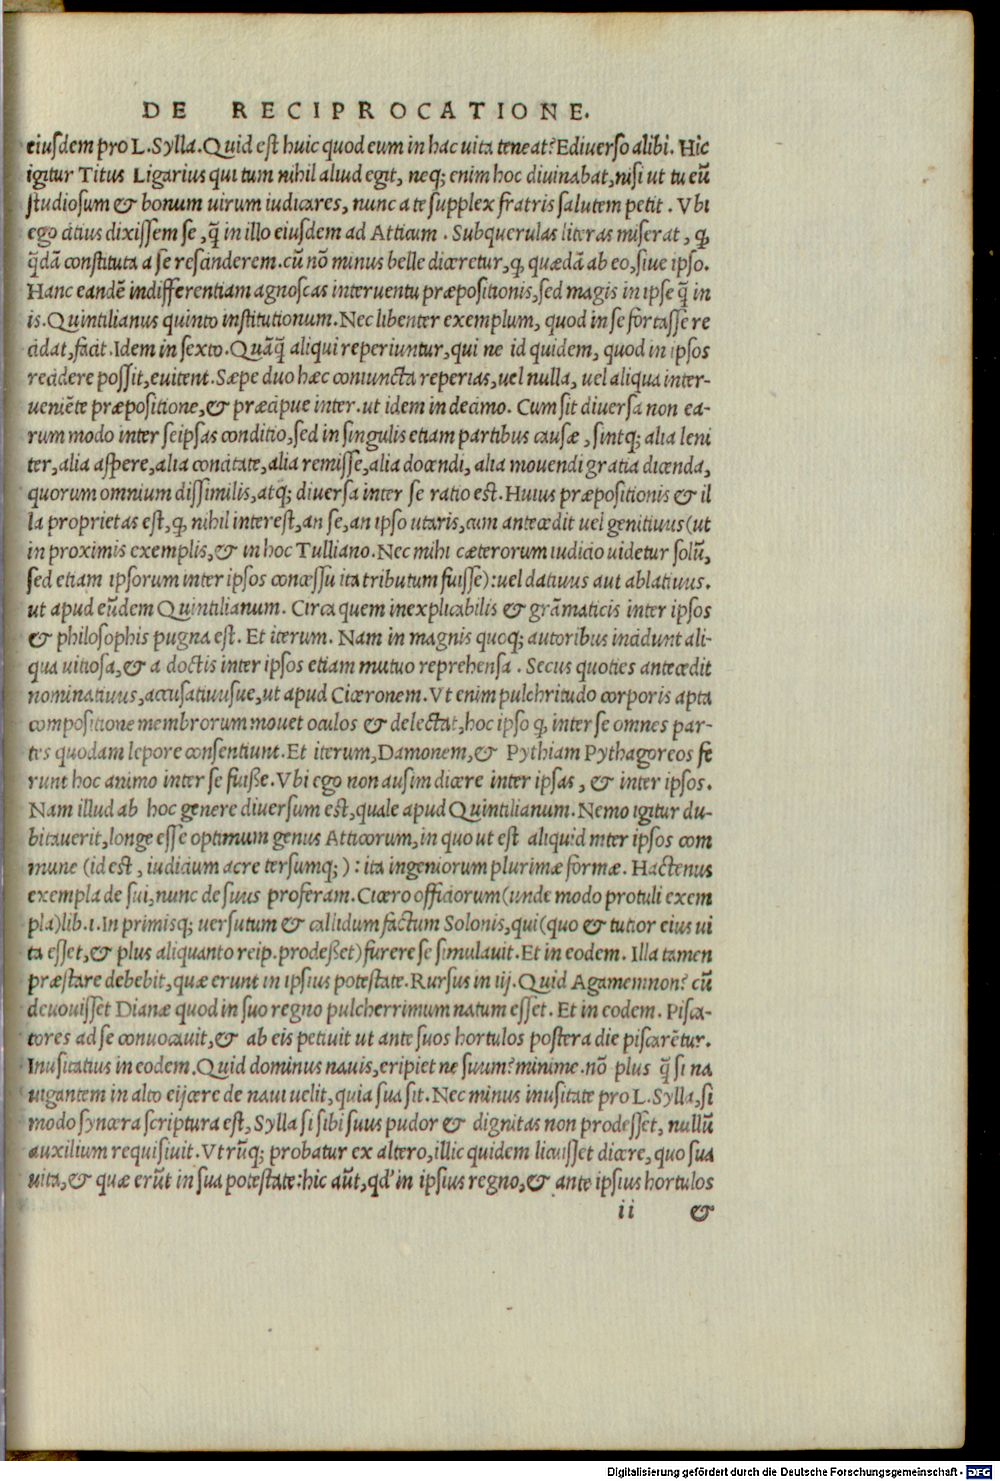 DE RECIPROCATIONE.
eiusdem pro L. Sylla. Quid est huic quod eum in hac uita teneat? Ediuerso alibi. Hic
igitur Titus Ligarius qui tum nihil aliud egit, neq; enim hoc diuinabat, nisi ut tu eũ
studiosum & bonum uirum iudicares, nunc a te supplex fratris salutem petit. Vbi
ego citius dixissem se, q̃ in illo eiusdem ad Atticum. Subquerulas literas miserat, ꝙ
q̃dã constituta a se rescinderem. cũ nõ minus belle diceretur, ꝙ quædã ab eo, siue ipso.
Hanc eandẽ indifferentiam agnoscas interuentu præpositionis, sed magis in ipse q̃ in
is. Quintilianus quinto institutionum. Nec libenter exemplum, quod in se fortasse re
cidat, facit. Idem in sexto. Quãq̃ aliqui reperiuntur, qui ne id quidem, quod in ipsos
recidere possit, euitent. Sæpe duo hæc coniuncta reperias, uel nulla, uel aliqua inter-
ueniẽte præpositione, & præcipue inter. ut idem in decimo. Cum sit diuersa non ea-
rum modo inter seipsas conditio, sed in singulis etiam partibus causæ, sintq; alia leni
ter, alia aspere, alia concitate, alia remisse, alia docendi, alia mouendi gratia dicenda,
quorum omnium dissimilis, atq; diuersa inter se ratio est. Huius præpositionis & il
la proprietas est, ꝙ nihil interest, an se, an ipso utaris, cum antecedit uel genitiuus (ut
in proximis exemplis, & in hoc Tulliano. Nec mihi cæterorum iudicio uidetur solũ,
sed etiam ipsorum inter ipsos concessu ita tributum fuisse): uel datiuus aut ablatiuus.
ut apud eũdem Quintilianum. Circa quem inexplicabilis & grãmaticis inter ipsos
& philosophis pugna est. Et iterum. Nam in magnis quoq; autoribus incidunt ali-
qua uitiosa, & a doctis inter ipsos etiam mutuo reprehensa. Secus quoties antecedit
nominatiuus, accusatiuusue, ut apud Ciceronem. Vt enim pulchritudo corporis apta
compositione membrorum mouet oculos & delectat, hoc ipso ꝙ inter se omnes par-
tes quodam lepore consentiunt. Et iterum, Damonem, & Pythiam Pythagoreos fe
runt hoc animo inter se fuiße. Vbi ego non ausim dicere inter ipsas, & inter ipsos.
Nam illud ab hoc genere diuersum est, quale apud Quintilianum. Nemo igitur du-
bitauerit, longe esse optimum genus Atticorum, in quo ut est aliquid inter ipsos com
mune (id est, iudicium acre tersumq;): ita ingeniorum plurimæ formæ. Hactenus
exempla de sui, nunc de suus proferam. Cicero officiorum (unde modo protuli exem
pla) lib. 1. In primisq; uersutum & callidum factum Solonis, qui (quo & tutior eius ui
ta esset, & plus aliquanto reip. prodeßet) furere se simulauit. Et in eodem. Illa tamen
præstare debebit, quæ erunt in ipsius potestate. Rursus in iij. Quid Agamemnon? cũ
deuouisset Dianæ quod in suo regno pulcherrimum natum esset. Et in eodem. Pisca-
tores ad se conuocauit, & ab eis petiuit ut ante suos hortulos postera die piscarẽtur.
Inusitatius in eodem. Quid dominus nauis, eripiet ne suum? minime. nõ plus q̃ si na
uigantem in alto eijcere de naui uelit, quia sua sit. Nec minus inusitate pro L. Sylla, si
modo syncera scriptura est, Sylla si sibi suus pudor & dignitas non prodesset, nullũ
auxilium requisiuit. Vtrũq; probatur ex altero, illic quidem licuisset dicere, quo sua
uita, & quæ erũt in sua potestate: hic aũt, qd' in ipsius regno, & ante ipsius hortulos
ii &
Digitalisierung gefördert durch die Deutsche Forschungsgemeinschaft - DFG